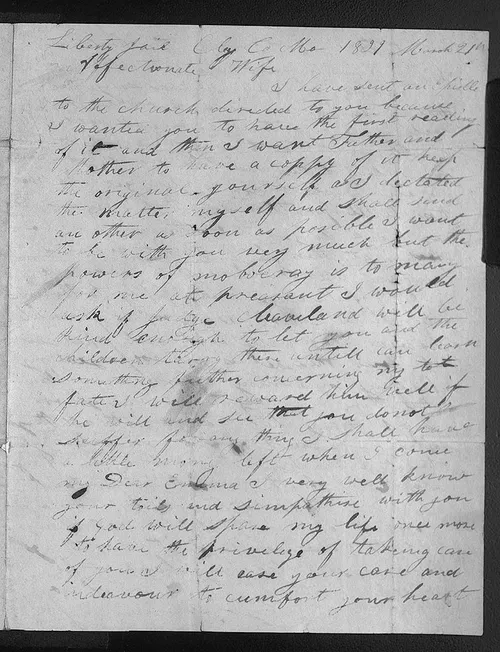 Liberty Jail Clay Co Mo 1839 March 21st
Affectionate Wife
I have sent an Epistle
to the church directed to you because
I wanted you to have the first reading
of it and then I want Father and
Mother to have a coppy of it keep
the original yourself as I dectated
the matter myself and shall send
an other as soon as posible I want
to be with you very much but the
powers of mobocracy is to many
for me at preasant I would
ask if Judge Cleaveland will be
kind enough to let you and the
children tarry there untill can learn
something further concerning my lot
fate I will reward him well if
he will and see that you do not
suffer for any thing I shall have
a little mony left when I come
my Dear Emma I very well know
your toils and simpathise with you
if God will spare my life once more
to have the privelege of takeing care
of you I will ease your care and
indeavour to cumfort your heart